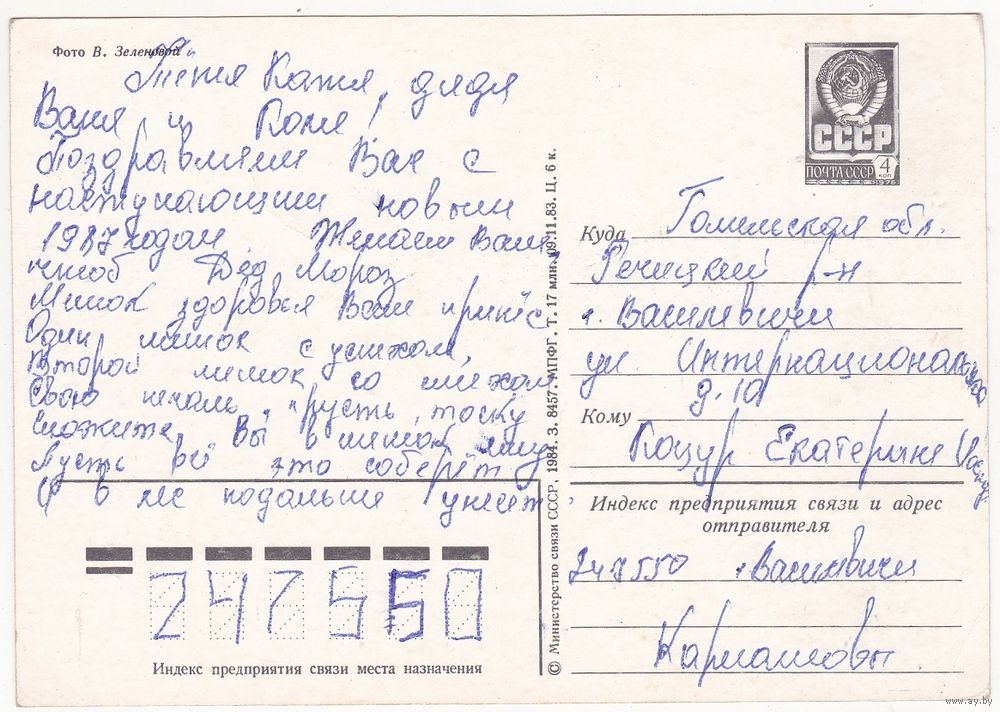 Фото В. Зеленовой
Тётя Катя, дядя
Ваня и Коля!
Поздравляем Вас с
наступающим новым
1987 годом. Желаем Вам,
чтоб Дед Мороз
Мешок здоровья Вам принёс
Один мешок с успехом,
Второй мешок со смехом
Свою печаль, грусть, тоску
Сложите Вы в мешок ему
Пусть всё это соберёт
И в лес подальше унесёт
СССР
ПОЧТА СССР
4
КОП
1976
Куда Гомельская обл.
Речицкий р-н
г. Василевичи
ул. Интернациональная
д. 10
Кому
Коцур Екатерине
Индекс предприятия связи и адрес
отправителя
247550 г. Василевичи
Кармановы
247550
Индекс предприятия связи места назначения
© Министерство связи СССР, 1984. З. 8457. МПФГ. Т. 17 млн. 09.11.83. Ц. 6 к.
www.ay.by